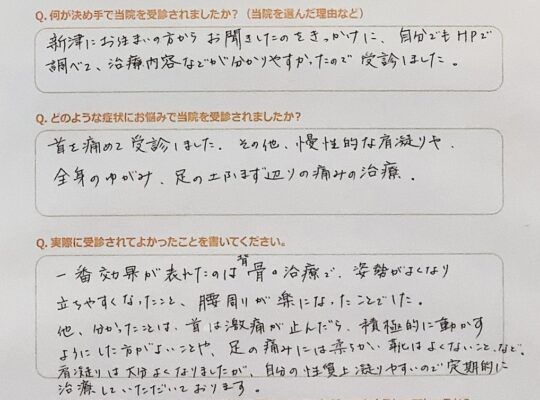 Q. 何が決め手で当院を受診されましたか？（当院を選んだ理由など）
新津にお住まいの方から お聞きしたのをきっかけに、自分でもHPで
調べて、治療内容などが分かりやすかったので 受診しました。
Q. どのような症状にお悩みで当院を受診されましたか？
首を痛めて受診しました。その他、慢性的な肩凝りや、
全身のゆがみ、足の土ふまず辺りの痛みの治療。
Q. 実際に受診されてよかったことを書いてください。
一番効果が表れたのは背骨の治療で、姿勢がよくなり
立ちやすくなったこと、腰周りが楽になったことでした。
他、分かったことは、首は激痛が止んだら、積極的に動かす
ようにした方がよいことや、足の痛みには柔らかい靴はよくないこと、など。
肩凝りは大分よくなりましたが、自分の性質上凝りやすいので定期的に
治療していただいております。